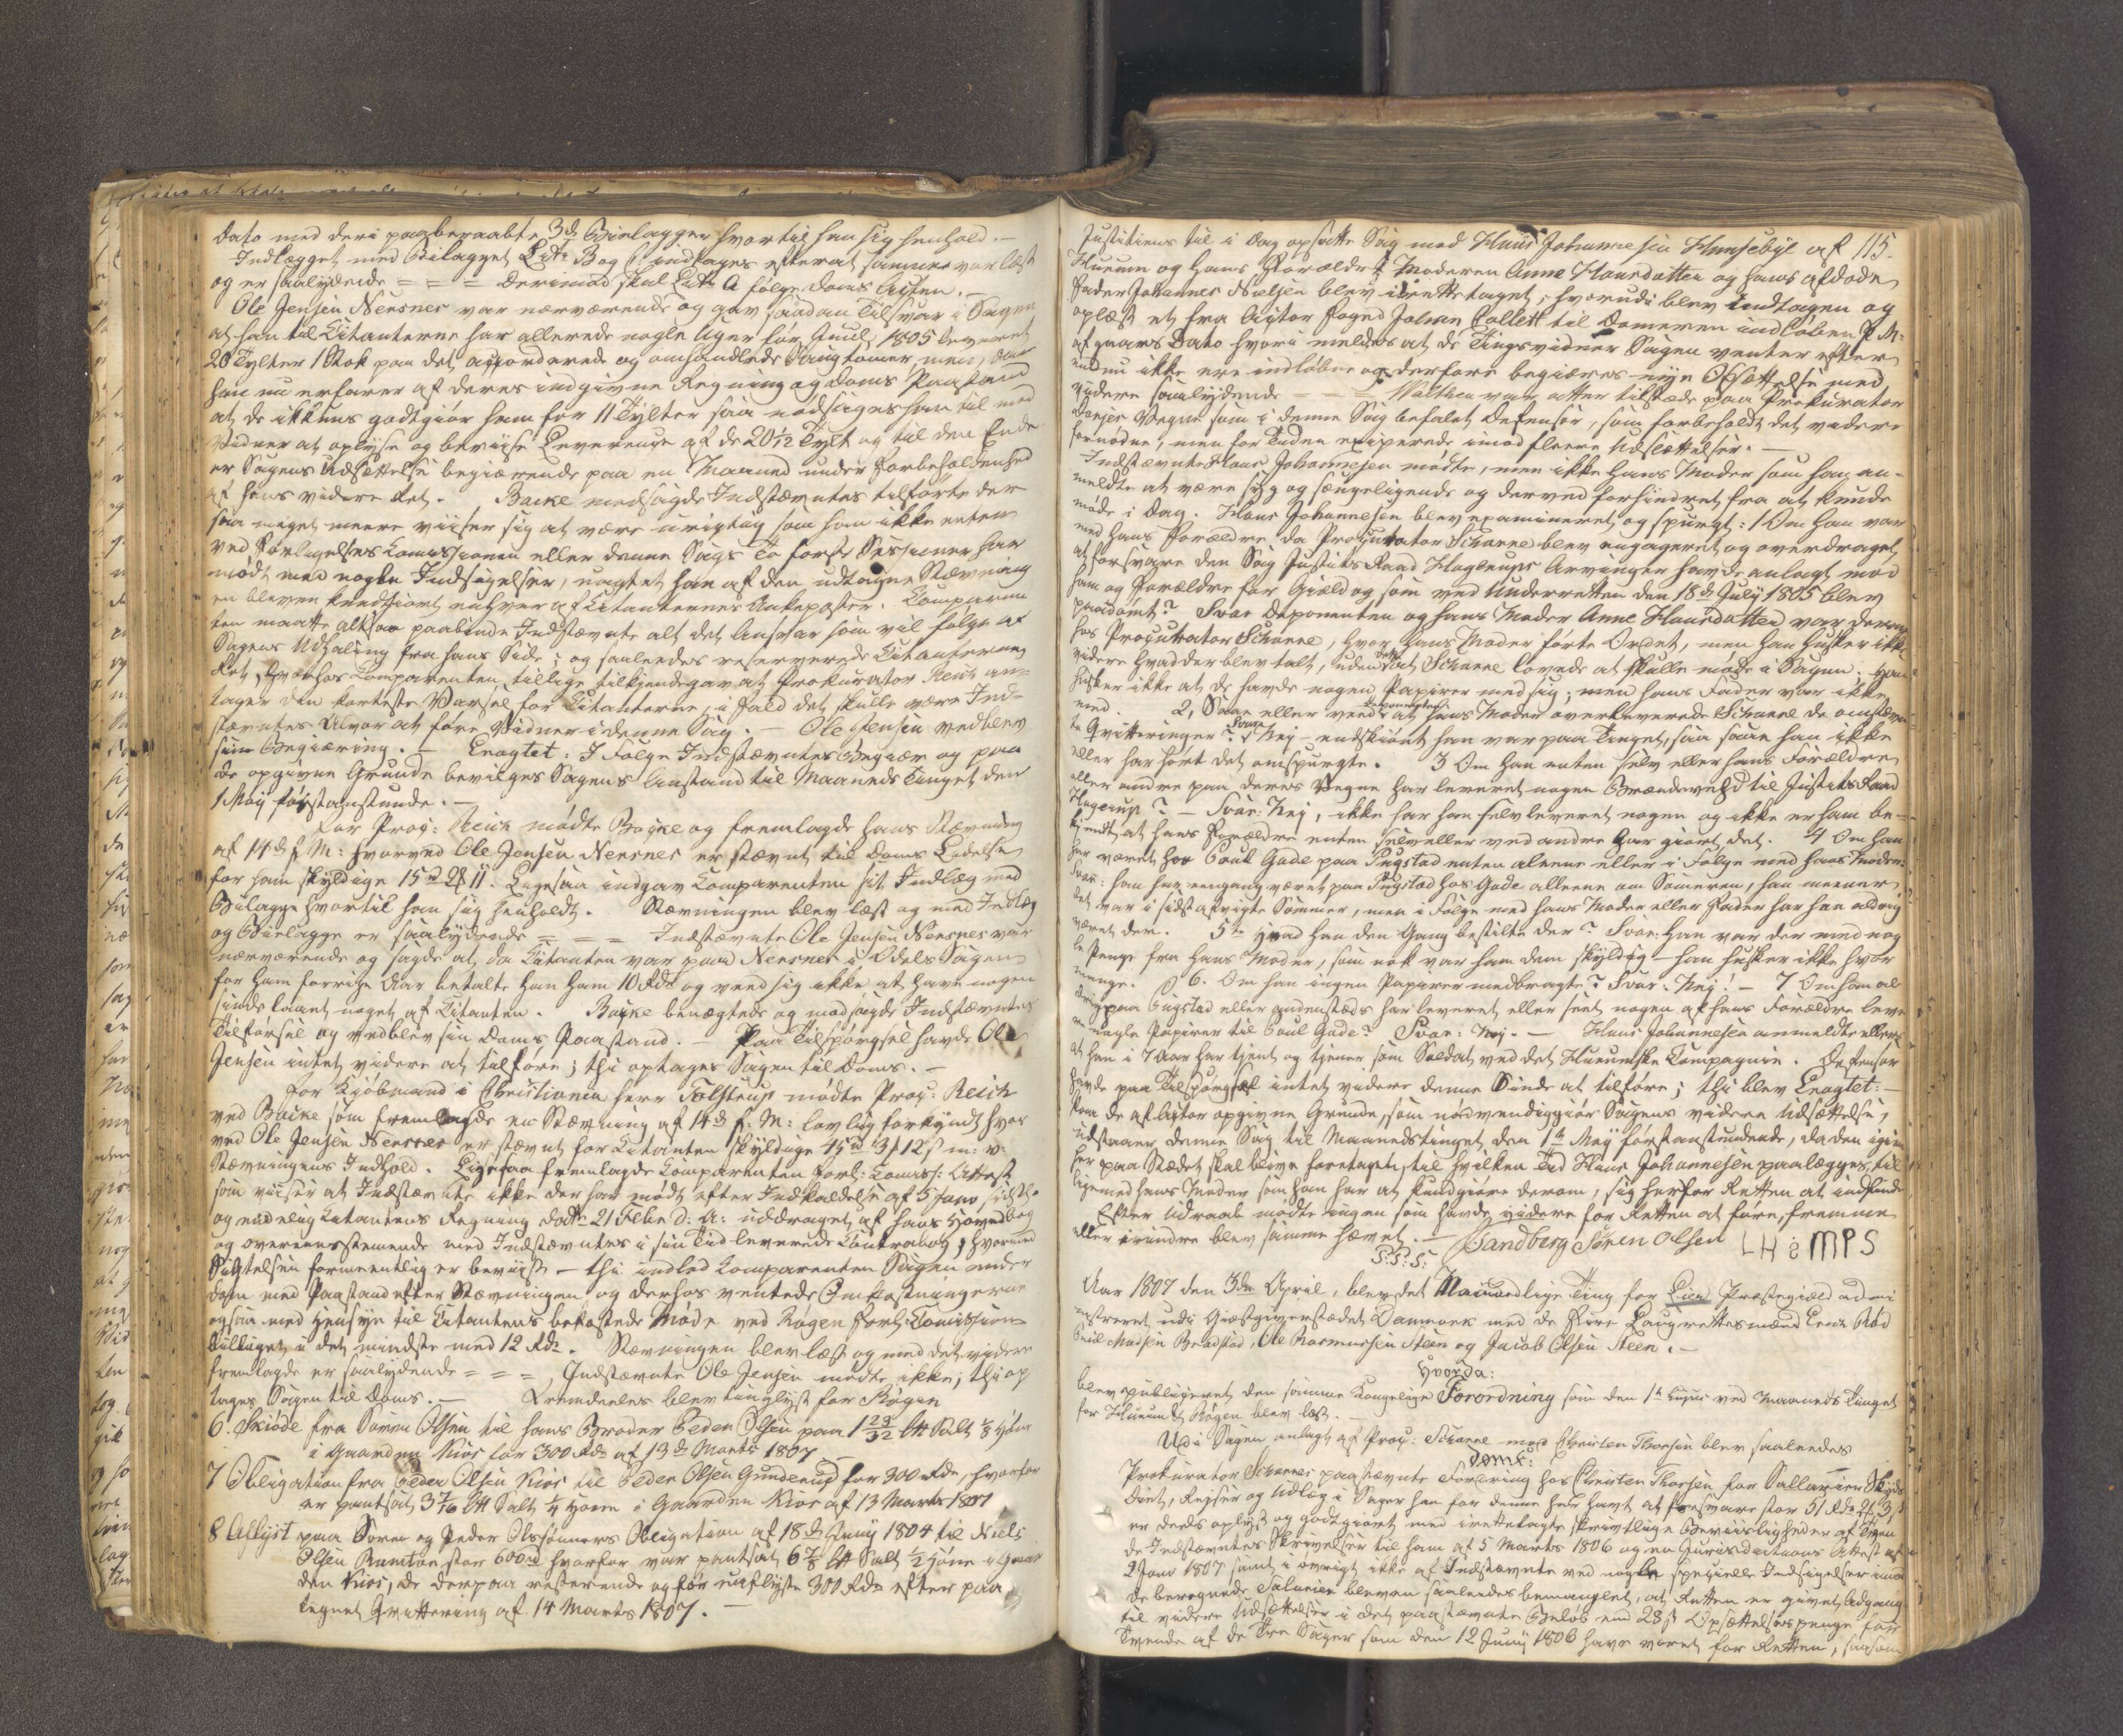 Dato med deri paaberaabte 3de Bielagger hvortil han sig henholdt. —
Indlægget med Bilagget Litr. B og C. indtages efter at samme var læst
og er saalydende = = = Derimod skal Litr. A følge Doms Acten. —
Ole Jensen Nersnes var nærværende og gav saadan Tilsvar i Sagen
at han til Citanterne har allerede nogle Uger før Juul 1805 leveret
20 Tylter 1 Stok paa det accorderede og omhandlede Saugtømer, men, da
han nu erfarer af deres indgivne Regning og Doms Paastand
at de ikkuns godtgiør ham for 11 Tylter saa nødsages han til med
Vidner at oplyse og beviise Leverence af de 20 1/12 Tylt og til den Ende
er Sagens Udsættelse begiærende paa en Maaned under Forbeholdenhed
af hans videre Ret. Backe modsigde Indstævntes tilførte der
saa meget meere viiser sig at være urigtig som han ikke enten
ved Forligelses Commissionen eller denne Sags To første Sessioner har
mødt med nogle Indsigelser, uagtet han af den udtagne Stævning
er bleven kundgiort enhver af Citanternes Ankeposter. Comparen
ten maatte altsaa paabinde Indstævnte alt det Ansvar som vil følge af
Sagens Udhaling fra hans Side; og saaledes reserverede Citanterne
Ret, hvorhos Comparenten tillige tilkiendegav at Prokurator Reich an-
tager den korteste Varsel for Citanterne, i Fald det skulle være Ind-
stævntes Alvor at føre Vidner i denne Sag. — Ole Jensen vedblev
sin Begiæring. — Eragtet: I Følge Indstævntes Begiær og paa
de opgivne Grunde bevilges Sagens Anstand til Maaneds Tinget den
1 May førstanstundende. —
For Proc: Reich mødte Backe og fremlagde hans Stævning
af 14de f. M: hvorved Ole Jensen Nersnes er stævnt til Doms Lidelse
for ham skyldige 15 rd 2 f 11. Ligesaa indgav Comparenten sit Indlæg med
Bilagge hvortil han sig henholdt. Stævningen blev læst og med Indlæg
og Bielagge er saalydende = = = Indstævnte Ole Jensen Nersnes var
nærværende og sagde at, da Citanten var paa Nersnes i Odels Sagen
for ham forrige Aar betalte han ham 10 Rdr og veed sig ikke at have nogen
sinde laant noget af Citanten. Backe benægtede og modsagde Indstævntes
Tilførsel og vedblev sin Doms Paastand. — Paa Tilspørgsel havde Ole
Jensen intet videre at tilføre; thi optages Sagen til Doms. —
For Kiøbmand i Christiania Herr Tolstrup mødte Proc: Reich
ved Backe som fremlagde en Stævning af 14de f. M: lovlig forkyndt hvor
ved Ole Jensen Nersnes er stævnt for Citanten skyldige 45 rd 3 f 12 s m: v:
Stævningens Indhold. Ligesaa fremlagde Comparenten Forl: Comiss: Attest
som viiser at Indstævnte ikke der har mødt efter Indkaldelse af 5 Janv sidstl.
og endelig Citantens Regning dat. 21 Febr. d: A: uddraget af hans Hovedbog
og overeensstemmende med Indstævntes i sin Tid leverede Contrabog, hvormed
Sigtelsen formeentlig er beviist — thi indlod Comparenten Sagen under
Dom med Paastand efter Stævningen og derhos ventede Omkostningerne
ogsaa med Hensyn til Citantens bekostede Møde ved Røgen Forl: Comission
billiget i det mindste med 12 Rdr. Stævningen blev læst og med det videre
fremlagde er saalydende = = =, Indstævnte Ole Jensen mødte ikke; thi op
tages Sagen til Doms. — Fremdeeles blev tinglyst for Røgen
6. Skiøde fra Søren Olsen til hans Broder Peder Olsen paa 1 23/32 Lb Salt 1/8 Høne
i Gaarden Kios for 300 Rdr af 13de Marts 1807 —
7 Obligation fra Peder Olsen Kios til Peder Olsen Gunderud for 300 Rdr, hvorfor
er pantsat 3 7/16 Lb Salt 1/4 Høne i Gaarden Kios af 13 Marts 1807
8 Aflyst paa Søren og Peder Olssønners Obligation af 18de Juny 1804 til Niels
Olsen Ramton stor 600 rd hvorfor var pantsat 6 7/8 Lb Salt 1/2 Høne i Gaar
den Kios, de derpaa resterende og før uaflyste 300 Rdr efter paa
tegnet Qvittering af 14 Marts 1807. —
115.
Justitiens til i Dag opsatte Sag mod Hans Johannesen Hunsebye af
Hurum og hans Forældre, Moderen Anne Hansdatter og hans afdøde
Fader Johannes Nielsen blev irettetaget, hvorudi blev indtagen og
oplæst et fra Actor Foged Johan Collett til Dommeren indløben P. M:
af gaars Dato hvori meldes at de Tingsvidner Sagen venter efter
endnu ikke ere indløbne og derfore begiæres nye Udsættelse med
videre saalydende = = = Walther var atter tilstæde paa Prokurator
Dorjes Vegne som i denne Sag befalet Defensor, som forbeholdt det videre
fornødne, men for Tiden exciperede imod fleere Udsættelser. —
Indstævnte Hans Johannesen mødte, men ikke hans Moder som han an-
meldte at være syg og sængeliggende og derved forhindret fra at kunde
møde i Dag. Hans Johannesen blev examineret og spurgt: 1 Om han var
med hans Forældre, da Procurator Schanne blev engageret og overdraget
at forsvare den Sag Justits Raad Hagerups Arvinger havde anlagt mod
ham og Forældre for Giæld og som ved Underretten den 18de July 1805 blev
paadømt? Svar Deponenten og hans Moder Anne Hansdatter var derom
hos Procurator Schanne, hvor hans Moder førte Ordet, men han husker ikke
videre hvad der blev talt, uden det at Schanne lovede at skulle møde i Sagen; han
husker ikke at de havde nogen Papirer med sig; men hans Fader var ikke
med. 2, Saae eller veed Deponenten at hans Moder overleverede Schanne de omstævn
te Qvitteringer? Svar Nej — endskiønt han var paa Tinget, saa saae han ikke
eller har hørt det omspurgte. 3 Om han enten selv eller hans Forældre
eller andre paa deres Vegne har leveret nogen Brændeved til Justits Raad
Hagerup? — Svar: Nej, ikke har han selv leveret nogen og ikke er ham be-
kiendt at hans Forældre enten selv eller ved andre har giort det. 4 Om han
har været hos Poul Gade paa Pugstad enten alleene eller i Følge med hans Moder:
Svar: han har eengang været paa Pugstad hos Gade alleene om Sommeren, han meener
det var i sidst afvigte Sommer, men i Følge med hans Moder eller Fader har han aldrig
været der. 5te Hvad han den Gang bestilte der? Svar: Han var der med nog
le Penge fra hans Moder, som nok var ham dem skyldig — han husker ikke hvor
mange. 6. Om han ingen Papirer medbragte? Svar: Nej! — 7 Om han al
drig paa Pugstad eller andenstæds har leveret eller seet nogen af hans Forældre leve
re nogle Papirer til Poul Gade? Svar: Nej. — Hans Johannesen anmeldte ellers
at han i 7 Aar har tjent og tjener som Soldat ved det Hurumske Compagnie. Defensor
havde paa Tilspørgsel intet videre denne Sinde at tilføre; thi blev Eragtet: —
Paa de af Actor opgivne Grunde, som nødvendiggiør Sagens videre Udsættelse,
udstaaer denne Sag til Maanedstinget den 1te May førstanstundende, da den igien
her paa Stædet skal blive foretaget, til hvilken Tid Hans Johannesen paalægges, til
ligemed hans Moder som han har at kundgiøre derom, sig herfor Retten at indfinde
Efter Udraab mødte ingen som havde videre for Retten at føre, fremme
eller erindre blev samme hævet. — Sandberg Søren Olsen L H S M P S
P: P: S:
Aar 1807 den 3die April, blev det Maanedlige Ting for Lier Præstegield admi
nistreret udi Giæstgiverstædet Damenen med de Fire Laugrettesmænd Erich Rød
Poul Madsen Brastad, Ole Rasmussen Steen og Jacob Olsen Steen. —
Hvorda:
blev publiceret den samme Kongelige Forordning som den 1te hujus ved Maaneds Tinget
for Hurum og Røgen blev læst. —
Udi Sagen anlagt af Proc: Schanne mod Christen Thorsen blev saaledes
Dømt:
Prokurator Schannes paastævnte Fordring hos Christen Thorsen for Sallarier Skyds
Diet, Rejser og Udlæg i Sager han for denne har havt at forsvare stor 51 Rdr 2 f 3 s
er deels oplyst og godtgiort med irettelagte skrivtlige Beviisligheder af Tven
de Indstævntes Skrivelser til ham af 5 Marts 1806 og en Jurisdictions Attest af
2 Janv 1807 samt i øvrigt ikke af Indstævnte ved nogle specielle Indsigelser imod
de beregnede Salarier bleven saaledes bemanglet, at Retten er givet Adgang
til videre Udsættelser i det paastævnte Beløb end 28 s Opsættelsespenge for
Tvende af de Tre Sager som den 12 Juny 1806 have været for Retten, saasom